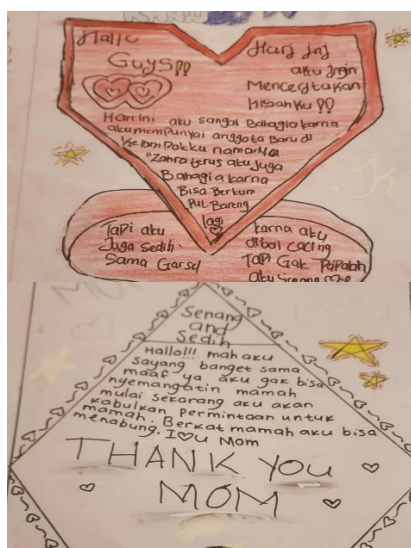 Hallo
Guys!!
Hari Ini
aku Ingin
Menceritakan
kisahku !!
Hari Ini aku sangat Bahagia karna
aku memPunyai anggota Baru di
KelomPokku namanya
"Zahra terus aku Juga
Bahagia karna
Bisa Berkum
Pul Bareng
lagi
TaPi aku
Juga Sedih
Sama
karna aku
TaPi Gak
Senang
and
Sedih
Hallo!!! mah aku
sayang banget sama
maaf ya aku gak bisa
nyemangatin mamah
mulai sekarang aku akan
kabulkan permintaan untuk
mamah. Berkat mamah aku bisa
menabung. I♡u Mom
THANK You
MOM